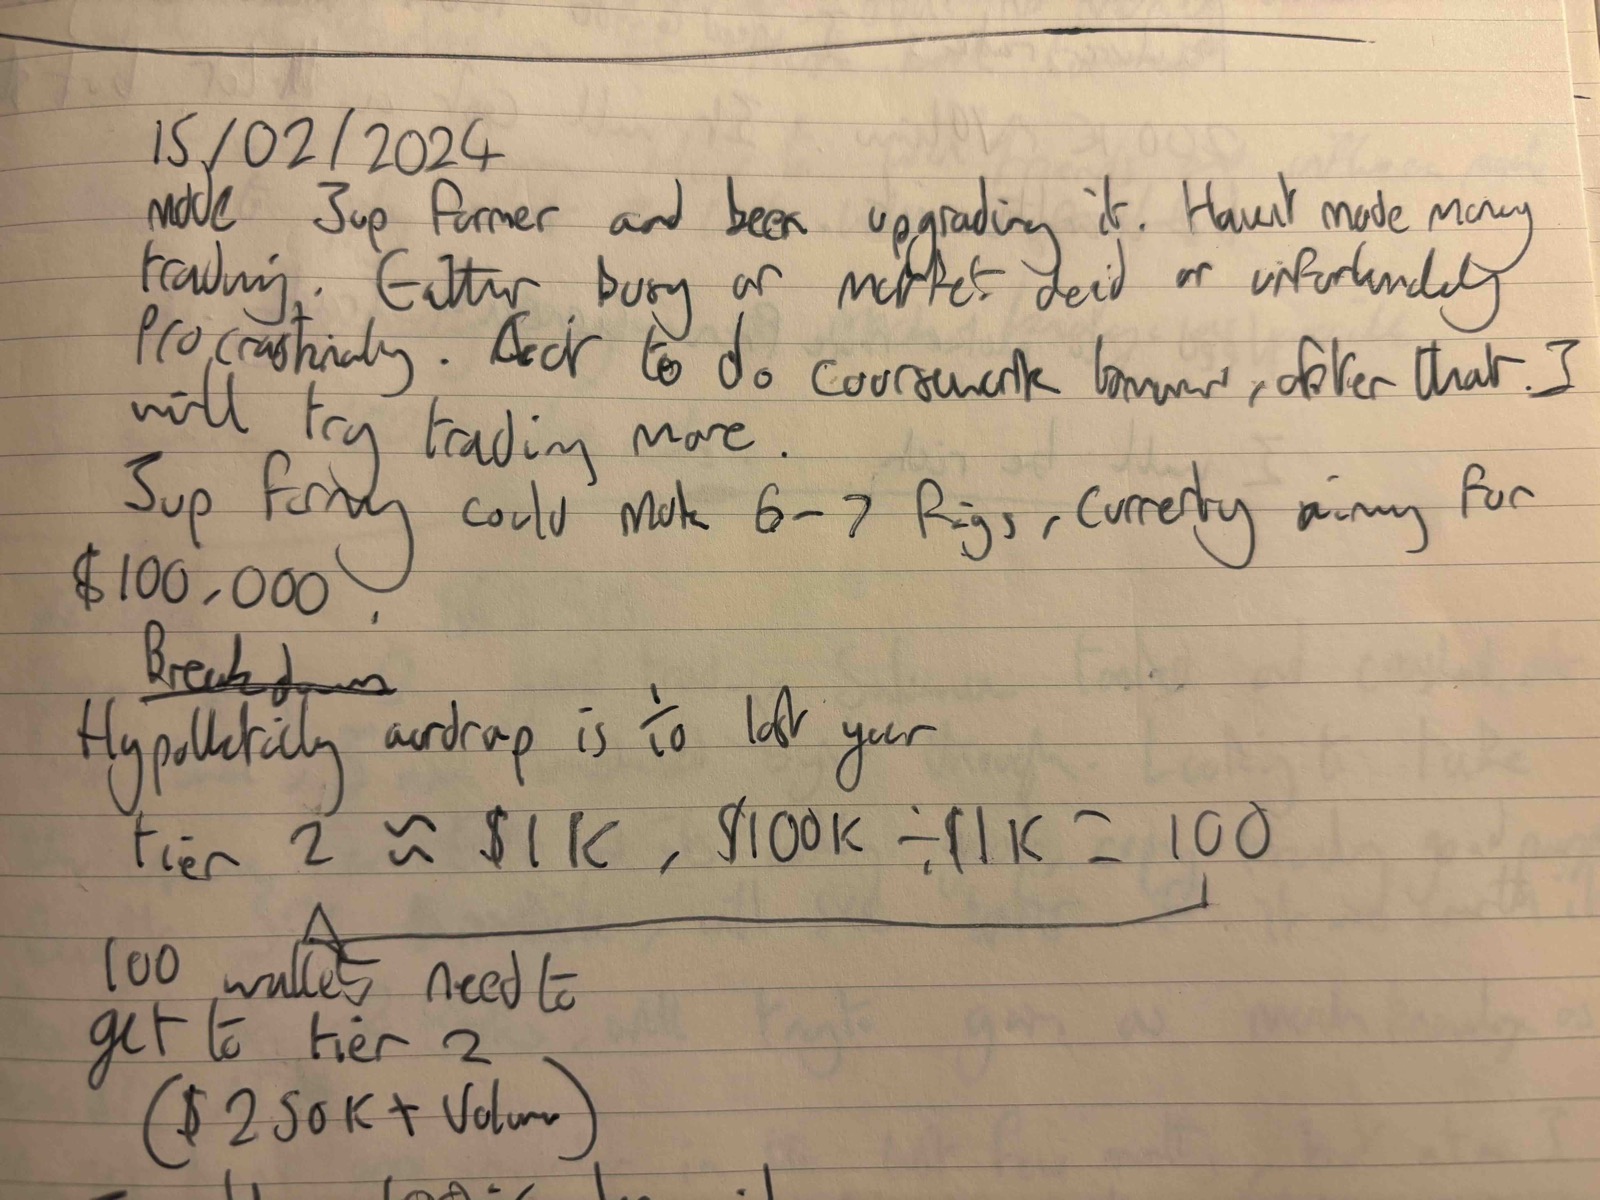 15/02/2024
Made Jup farmer and been upgrading it. Havent made money
trading. Either busy or market dead or unfortunately
Procrastinating. to do coursework tomorrow, after that I
will try trading more.
Jup farming could make 6-7 figs, currently aiming for
$100,000.
Breakdown
Hypothetically airdrop is 1/10 last year
tier 2 ≈ $1K, $100K ÷ $1K = 100
100 wallets need to
get to tier 2
($250K+ Volume)